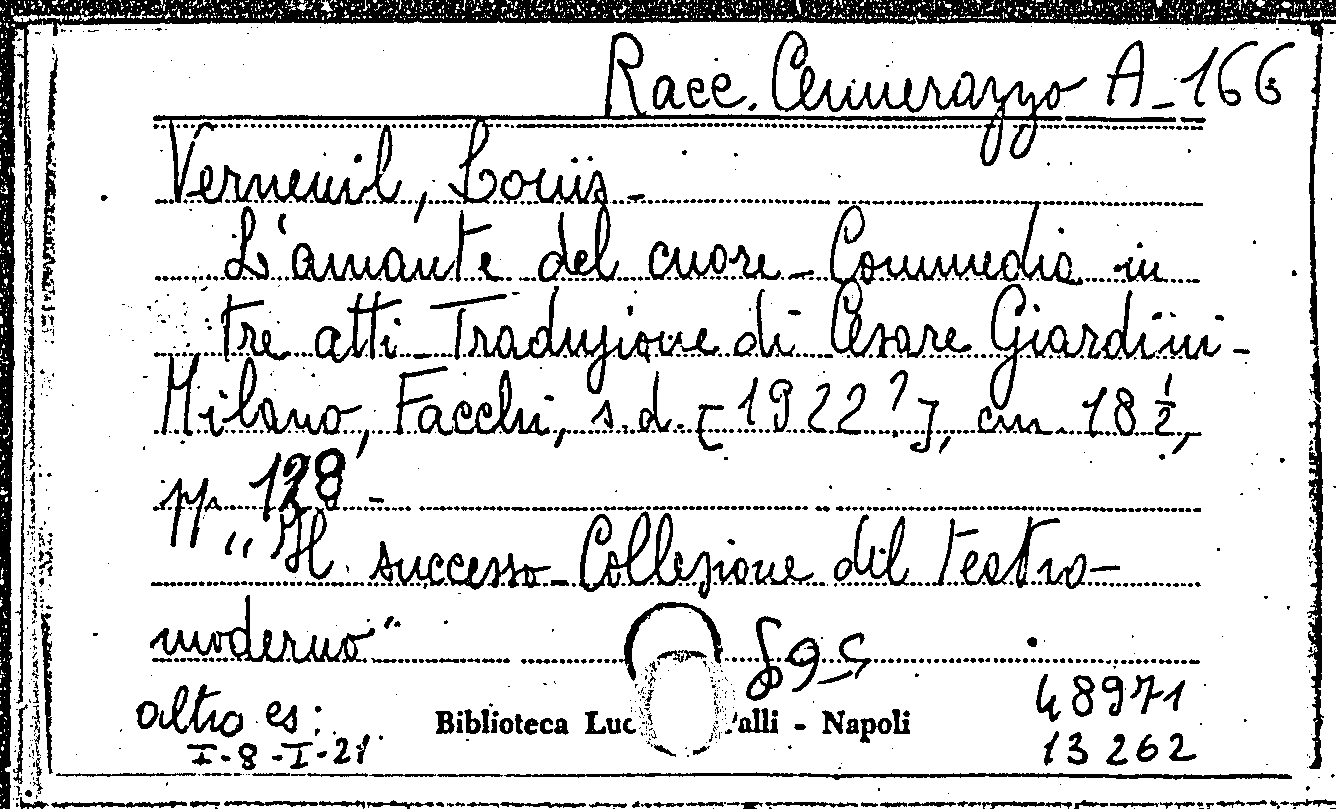 Racc. Cennerazzo A-166
Verneuil, Louis -
L'amante del cuore - Commedia in
tre atti - Traduzione di Cesare Giardini -
Milano, Facchi, s.d. [1922?], cm. 18 ½,
pp. 128 -
"Il successo - Collezione del teatro
moderno"
895
altro es:
I-8-I-21
Biblioteca Luc alli - Napoli
48971
13262